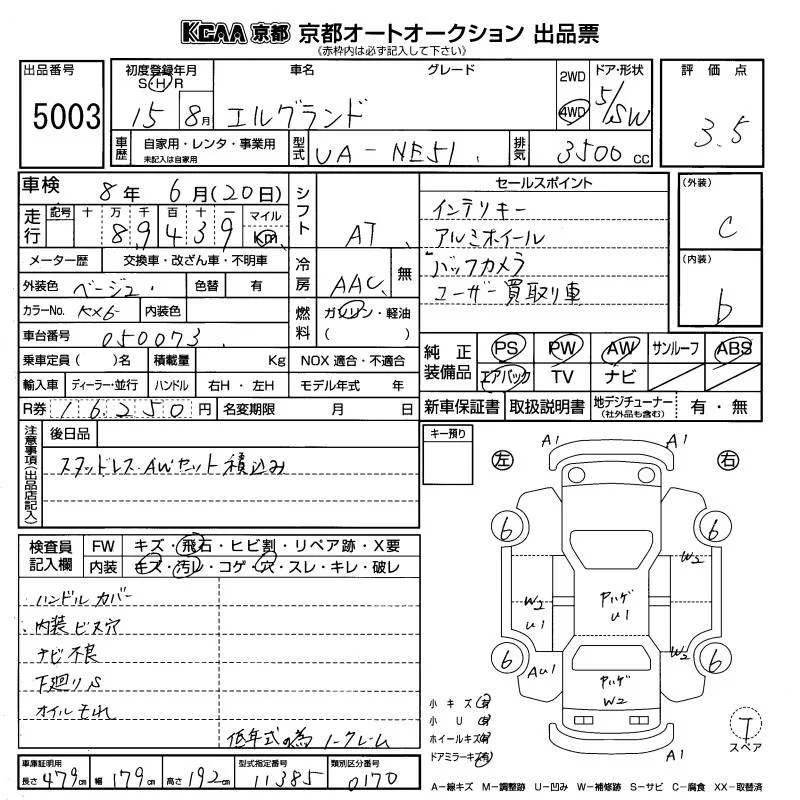 KCAA 京都 京都オートオークション 出品票
(赤枠内は必ず記入して下さい)
出品番号 5003
初度登録年月 S・H・R 15 8月
車名 エルグランド グレード
2WD 4WD
ドア・形状 5/SW
評価点 3.5
車歴 自家用・レンタ・事業用 未記入は自家用
型式 UA-NE51
排気 3500 cc
車検 8年 6月(20日)
走行 記号 十 万 千 百 十 一 マイル
89439 km
シフト AT
セールスポイント
インテリキー
アルミホイール
バックカメラ
ユーザー買取り車
(外装) C
(内装) b
メーター歴 交換車・改ざん車・不明車
冷房 AAC 無
外装色 ベージュ 色替 有
カラーNo. KX6 内装色
燃料 ガソリン・軽油 ( )
車台番号 050073
乗車定員 ( )名 積載量 Kg NOX 適合・不適合
純正装備品 PS PW AW サンルーフ ABS
エアバック TV ナビ
輸入車 ディーラー・並行 ハンドル 右H・左H モデル年式 年
R券 16250円 名変期限 月 日
新車保証書 取扱説明書 地デジチューナー (社外品も含む) 有・無
注意事項(出品店記入) 後日品
スタッドレス・AWセット積込み
キー預り
検査員記入欄 FW キズ・飛石・ヒビ割・リペア跡・X要
内装 キズ・汚レ・コゲ・穴・スレ・キレ・破レ
ハンドルカバー
内装ビス穴
ナビ不良
下廻りS
オイルモレ
低年式の為ノークレーム
左 右
A1 A1
6 6
W2
W2 U1
Pハゲ U1
W2
6 6
AU1
Pハゲ W2
A1
小キズ(有)
小U(有)
ホイールキズ(有)
ドアミラーキズ(有)
T
スペア
車庫証明用 長さ 479cm 幅 179cm 高さ 192cm 型式指定番号 11385 類別区分番号 0170
A-線キズ M-調整跡 U-凹み W-補修跡 S-サビ C-腐食 XX-取替済